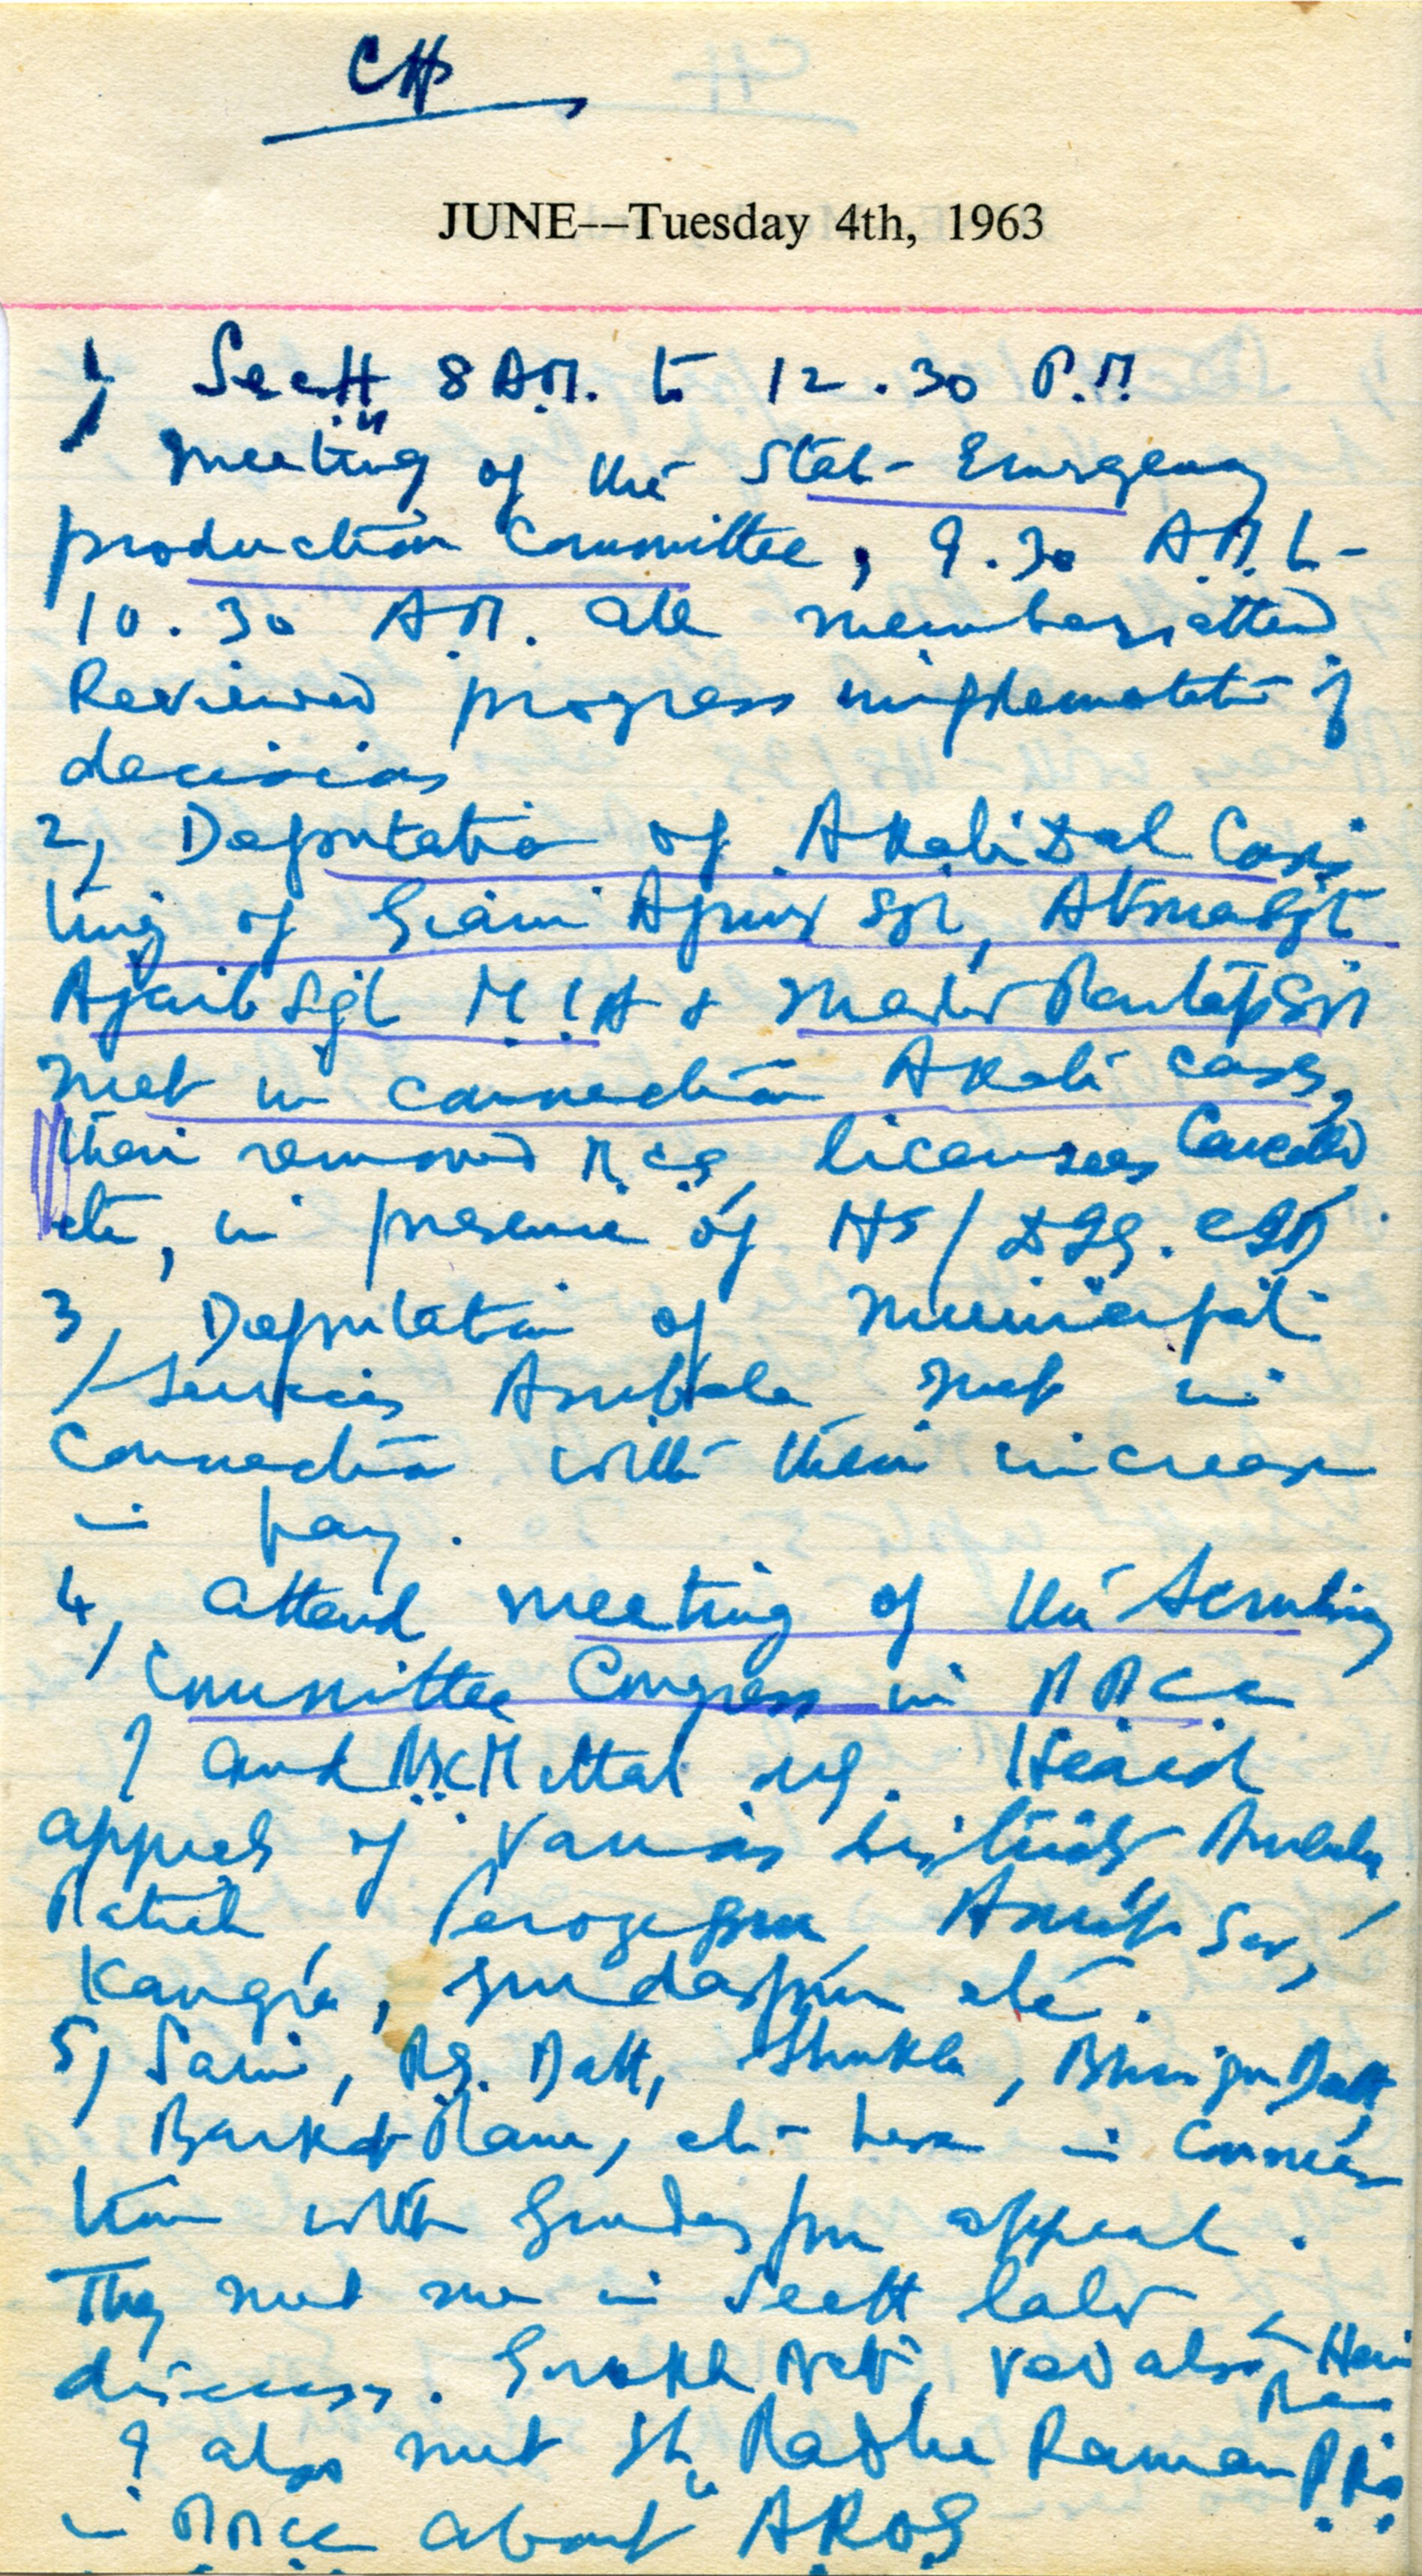 CH
JUNE--Tuesday 4th, 1963
1) Sectt 8 A.M. to 12.30 P.M
Meeting of the State Emergency
production Committee, 9.30 A.M. to
10.30 A.M. all members attend
Reviewed progress implementation of
decisions
2, Deputation of Akali Dal Consis
ting of Giani Ajmer Sgh, Atma Sgh
Ajaib Sgh M.L.A & Master Partap Sgh
met in connection Akali cases,
their removed licenses Cancelled
etc, in presence of HS/
3, Deputation of Municipal
Services Ambala met in
connection with their increase
in pay.
4, attend meeting of the Scrutiny
Committee Congress in PPCC
I and Mittal Heard
appeals of various districts Ambala
Patiala, Ferozepur, Amritsar,
Kangra, Gurdaspur etc.
5, Saini, Datt, Shukla, Datt,
Barkat Ram, etc here in connec
tion with Gurdaspur appeal.
They met me in Sectt later
discuss. Gorakh Nath, Ved also & Hari
Ram
I also met Sh. Radhe Raman
in PPCC about